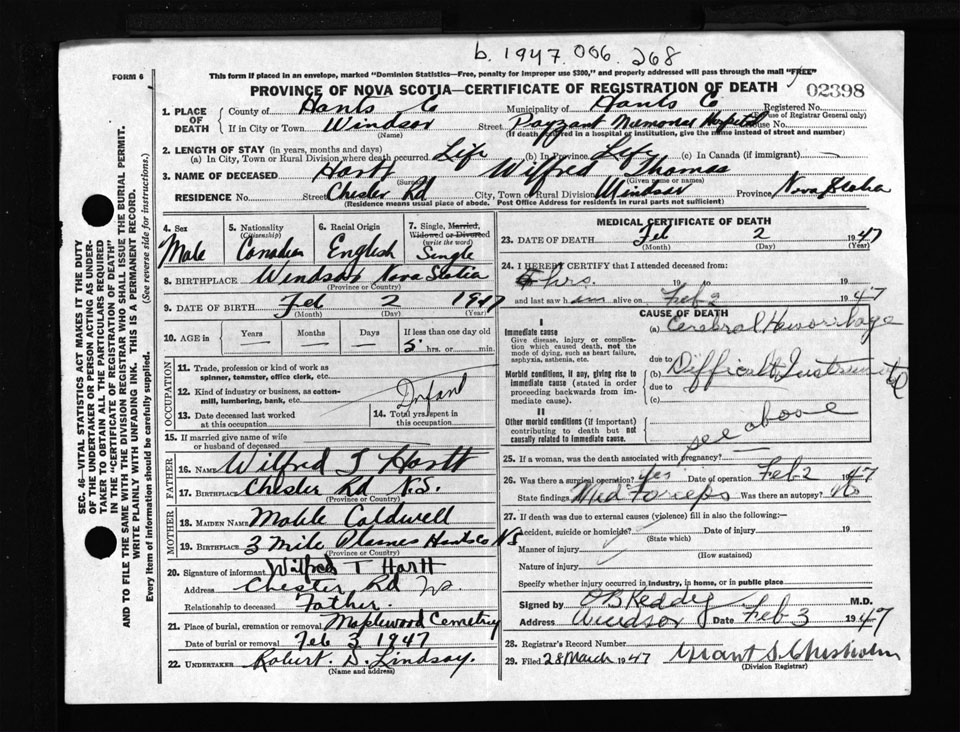 b. 1947. 006. 268
FORM 6
This form if placed in an envelope, marked "Dominion Statistics—Free, penalty for improper use $300," and properly addressed will pass through the mail "FREE"
PROVINCE OF NOVA SCOTIA—CERTIFICATE OF REGISTRATION OF DEATH
02398
1. PLACE OF DEATH
County of Hants Co Municipality of Hants Co Registered No.
(For use of Registrar General only)
If in City or Town Windsor Street Payzant Memorial Hospital House No.
(Name) (If death occurred in a hospital or institution, give the name instead of street and number)
2. LENGTH OF STAY (in years, months and days)
(a) In City, Town or Rural Division where death occurred Life (b) In Province Life (c) In Canada (if immigrant)
3. NAME OF DECEASED Hartt Wilfred Thomas
(Surname) (Given name or names)
RESIDENCE No. Street Chester Rd City, Town or Rural Division Windsor Province Nova Scotia
(Residence means usual place of abode. Post Office Address for residents in rural parts not sufficient)
4. Sex Male
5. Nationality (Citizenship) Canadian
6. Racial Origin English
7. Single, Married, Widowed or Divorced (write the word) Single
8. BIRTHPLACE Windsor Nova Scotia
(Province or Country)
9. DATE OF BIRTH Feb 2 1947
(Month) (Day) (Year)
10. AGE in Years Months Days If less than one day old
5 hrs. or min.
OCCUPATION
11. Trade, profession or kind of work as spinner, teamster, office clerk, etc.
12. Kind of industry or business, as cotton-mill, lumbering, bank, etc. Infant
13. Date deceased last worked at this occupation
14. Total yrs. spent in this occupation
15. If married give name of wife or husband of deceased
FATHER
16. NAME Wilfred T Hartt
17. BIRTHPLACE Chester Rd N.S.
(Province or Country)
MOTHER
18. MAIDEN NAME Caldwell
19. BIRTHPLACE 3 Mile Plaines Hants Co NS
(Province or Country)
20. Signature of informant Wilfred T Hartt
Address Chester Rd NS.
Relationship to deceased Father.
21. Place of burial, cremation or removal Maplewood Cemetry
Date of burial or removal Feb 3 1947
22. UNDERTAKER Robert. D. Lindsay.
(Name and address)
MEDICAL CERTIFICATE OF DEATH
23. DATE OF DEATH Feb 2 1947
(Month) (Day) (Year)
24. I HEREBY CERTIFY that I attended deceased from:
hrs. 19 to 19
and last saw him alive on Feb 2 1947
CAUSE OF DEATH
I
Immediate cause
Give disease, injury or complication which caused death, not the mode of dying, such as heart failure, asphyxia, asthenia, etc.
(a) Cerebral Hemorrhage
due to
Morbid conditions, if any, giving rise to immediate cause (stated in order proceeding backwards from immediate cause).
(b) Difficult Instrumental
due to
(c)
II
Other morbid conditions (if important) contributing to death but not causally related to immediate cause.
see above
25. If a woman, was the death associated with pregnancy?
26. Was there a surgical operation? Yes Date of operation Feb 2 1947
State findings Mid Forceps Was there an autopsy? No
27. If death was due to external causes (violence) fill in also the following:—
Accident, suicide or homicide? Date of injury 19
(State which)
Manner of injury
(How sustained)
Nature of injury
Specify whether injury occurred in industry, in home, or in public place
Signed by O B Keddy M.D.
Address Windsor Date Feb 3 1947
28. Registrar's Record Number
29. Filed 28 March 1947 Grant S. Chisholm
(Division Registrar)
SEC. 46—VITAL STATISTICS ACT MAKES IT THE DUTY
OF THE UNDERTAKER OR PERSON ACTING AS UNDER-
TAKER TO OBTAIN ALL THE PARTICULARS REQUIRED
IN THE "CERTIFICATE OF REGISTRATION OF DEATH"
AND TO FILE THE SAME WITH THE DIVISION REGISTRAR WHO SHALL ISSUE THE BURIAL PERMIT.
WRITE PLAINLY WITH UNFADING INK. THIS IS A PERMANENT RECORD.
Every item of information should be carefully supplied. (See reverse side for instructions.)